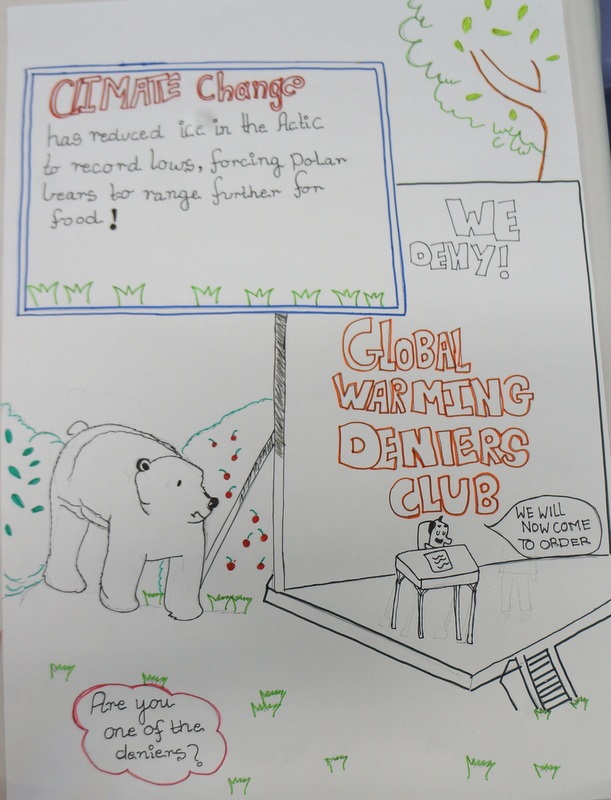 CLIMATE Change
has reduced ice in the Actic
to record lows, forcing polar
bears to range further for
food!
WE
DENY!
GLOBAL
WARMING
DENIERS
CLUB
WE WILL
NOW COME
TO ORDER
Are you
one of the
deniers?